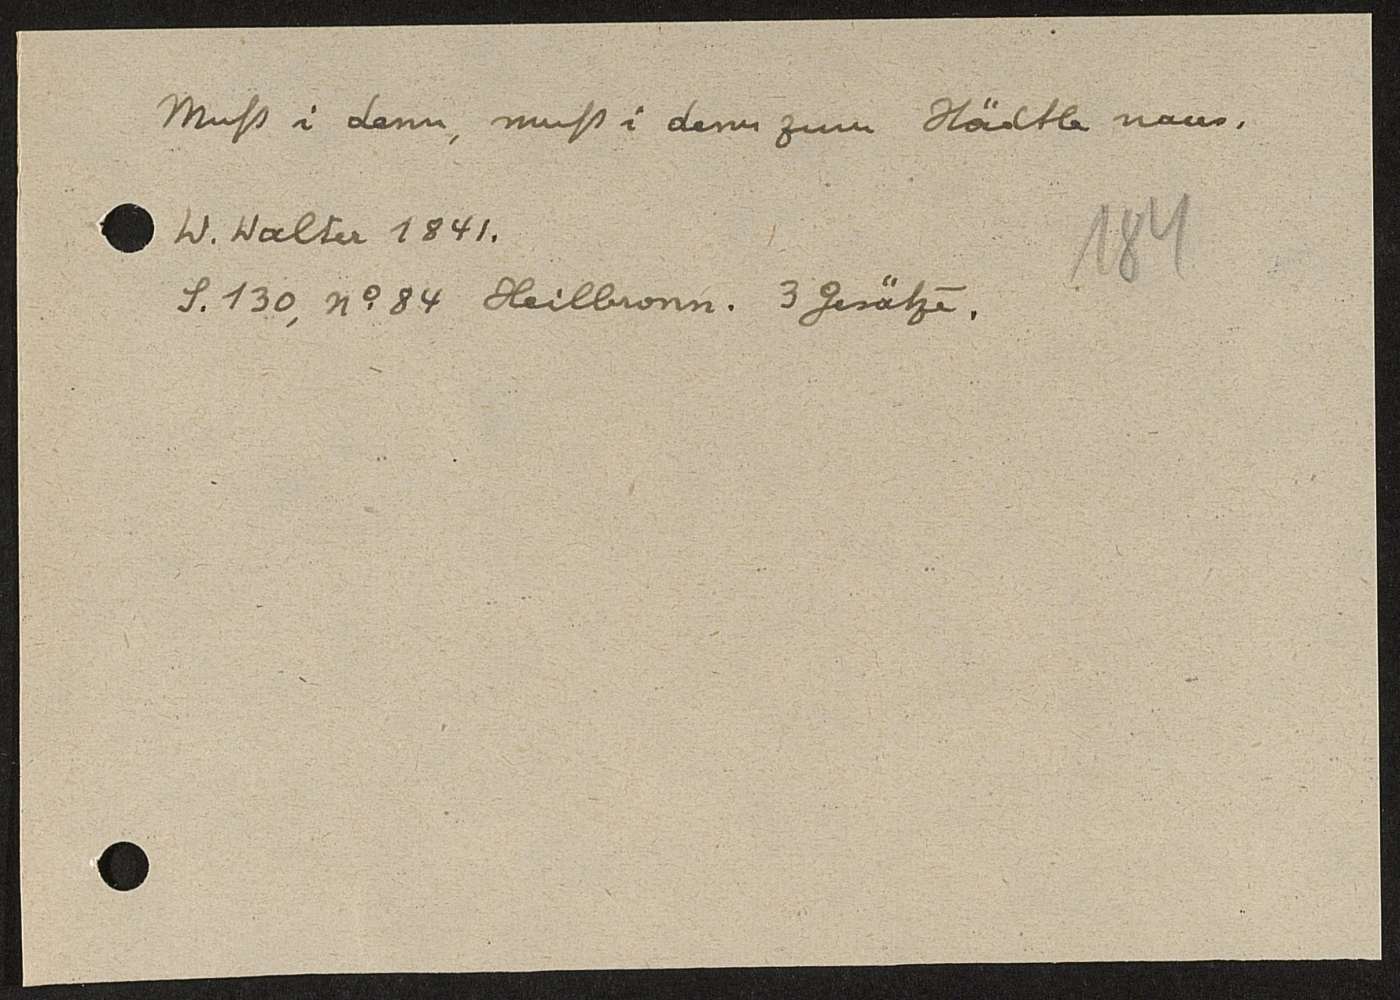 Muß i denn, muß i denn zum Städtle naus.
W. Walter 1841.
184
S. 130, nº. 84 Heilbronn. 3 Gesätze.